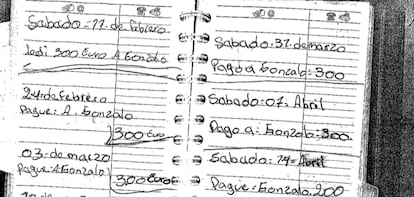 Sabado = 17. de febrero
ledi 300 Euro A Gonzalo
24 de febrero
Pague: A. Gonzalo
300 Euro
03. de marzo
Pague: A Gonzalo
300 Euros
Sabado: 31. de marzo
Pago a Gonzalo: 300
Sabado: 07: Abril
Pago a: Gonzalo: 300
Sabado: 14 = Abril
Pague: Gonzalo. 200